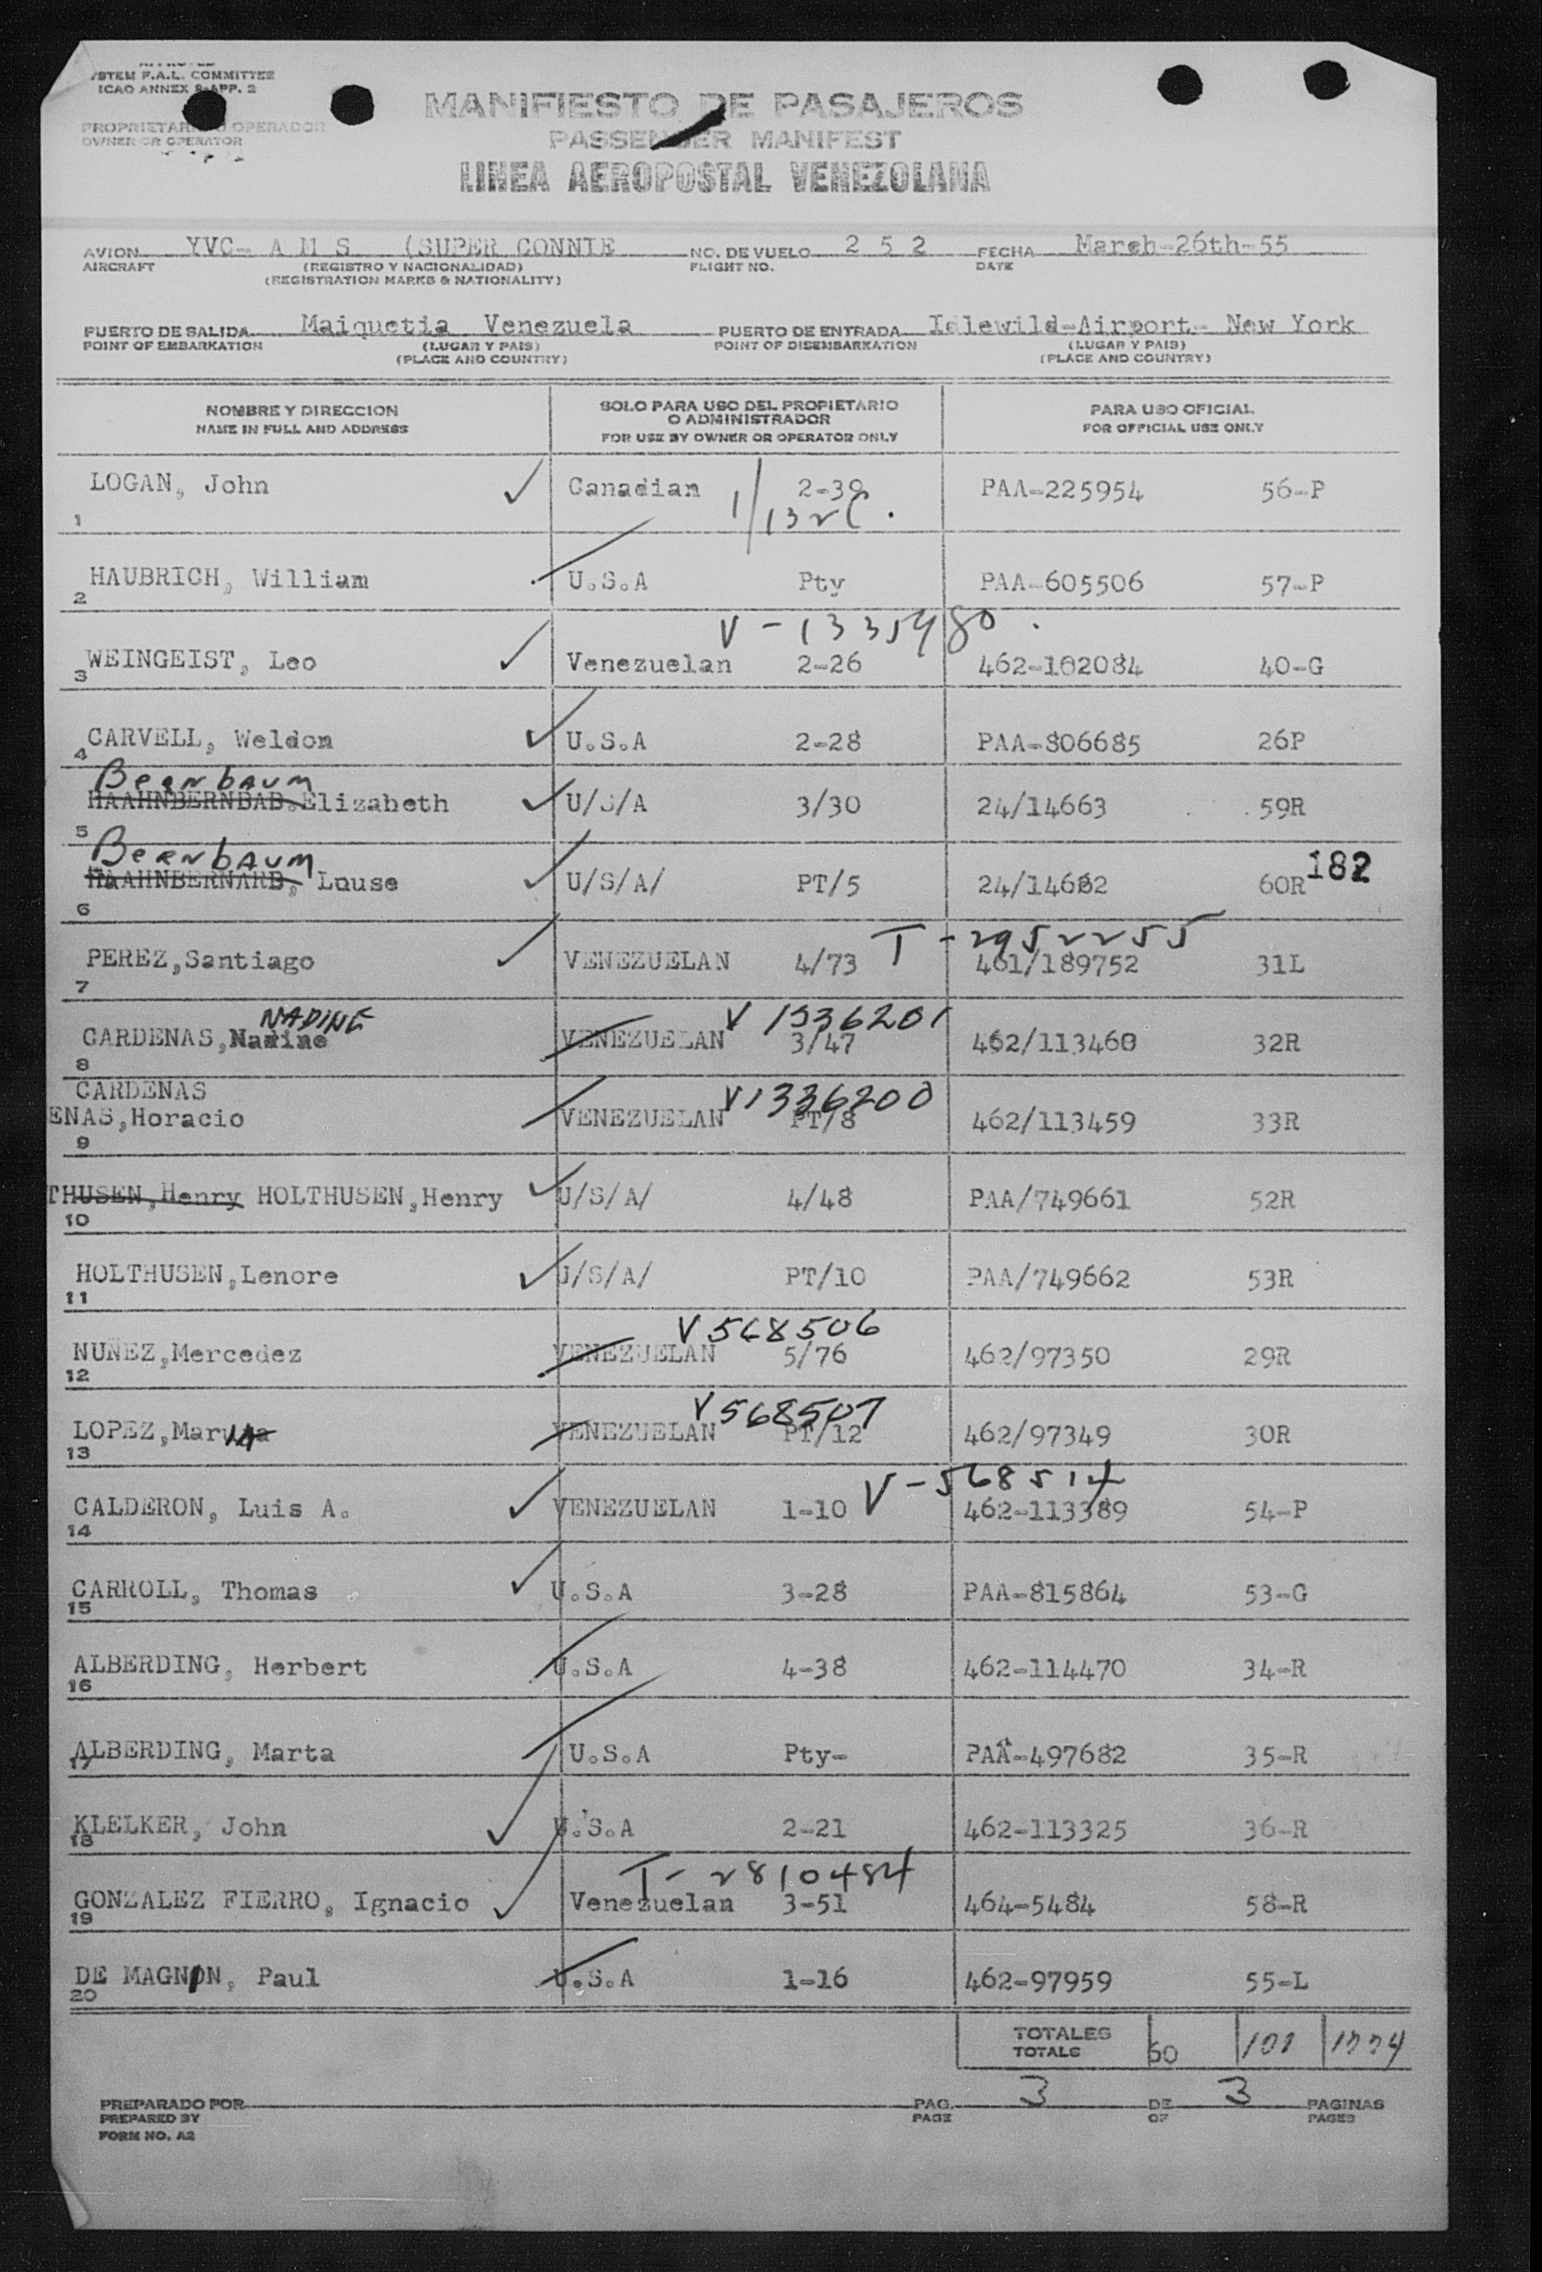 SYSTEM F.A.L. COMMITTEE
ICAO ANNEX 9-APP. 2
PROPRIETARIO U OPERADOR
OWNER OR OPERATOR
MANIFIESTO DE PASAJEROS
PASSENGER MANIFEST
LINEA AEROPOSTAL VENEZOLANA
AVION YVC- A M S (SUPER CONNIE NO. DE VUELO 2 5 2 FECHA March-26th-55
AIRCRAFT (REGISTRO Y NACIONALIDAD) FLIGHT NO. DATE
(REGISTRATION MARKS & NATIONALITY)
PUERTO DE SALIDA Maiquetia Venezuela PUERTO DE ENTRADA Idlewild-Airport- New York
POINT OF EMBARKATION (LUGAR Y PAIS) POINT OF DISEMBARKATION (LUGAR Y PAIS)
(PLACE AND COUNTRY) (PLACE AND COUNTRY)
NOMBRE Y DIRECCION SOLO PARA USO DEL PROPIETARIO O ADMINISTRADOR PARA USO OFICIAL
NAME IN FULL AND ADDRESS FOR USE BY OWNER OR OPERATOR ONLY FOR OFFICIAL USE ONLY
LOGAN, John Canadian 2-39 PAA-225954 56-P
1
HAUBRICH, William U.S.A Pty PAA-605506 57-P
2
V-1335980.
WEINGEIST, Leo Venezuelan 2-26 462-102084 40-G
3
CARVELL, Weldon U.S.A 2-28 PAA-806685 26P
4
Bernbaum
HAAHNBERNBAD.Elizabeth U/S/A 3/30 24/14663 59R
5
Bernbaum
HAAHNBERNARD, Louse U/S/A/ PT/5 24/14662 60R 182
6
T-2952255
PEREZ,Santiago VENEZUELAN 4/73 461/189752 31L
7
NADINE V 1336201
CARDENAS,Nadine VENEZUELAN 3/47 462/113460 32R
8
CARDENAS V1336200
ENAS,Horacio VENEZUELAN PT/8 462/113459 33R
9
THUSEN,Henry HOLTHUSEN,Henry U/S/A/ 4/48 PAA/749661 52R
10
HOLTHUSEN,Lenore U/S/A/ PT/10 PAA/749662 53R
11
V568506
NUÑEZ,Mercedez VENEZUELAN 5/76 462/97350 29R
12
V568507
LOPEZ,Maruja VENEZUELAN PT/12 462/97349 30R
13
V-568514
CALDERON, Luis A. VENEZUELAN 1-10 462-113389 54-P
14
CARROLL, Thomas U.S.A 3-28 PAA-815864 53-G
15
ALBERDING, Herbert U.S.A 4-38 462-114470 34-R
16
ALBERDING, Marta U.S.A Pty- PAA-497682 35-R
17
KLELKER, John U.S.A 2-21 462-113325 36-R
18
T-2810484
GONZALEZ FIERRO, Ignacio Venezuelan 3-51 464-5484 58-R
19
DE MAGNON, Paul U.S.A 1-16 462-97959 55-L
20
TOTALES
TOTALS 60 101 1774
PREPARADO POR PAG. 3 DE 3 PAGINAS
PREPARED BY PAGE OF PAGES
FORM NO. A2